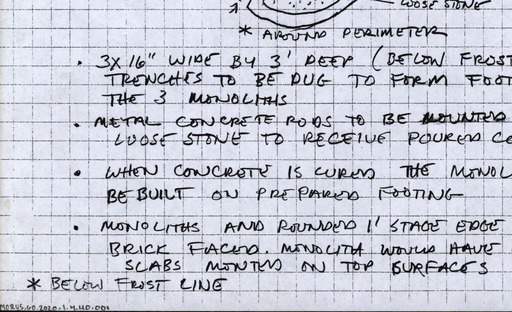 LOOSE STONE
* AROUND PERIMETER
• 3X 16" WIDE BY 3' DEEP (BELOW FROST
TRENCHES TO BE DUG TO FORM FOOT
THE 3 MONOLITHS
• METAL CONCRETE RODS TO BE MOUNTED
LOOSE STONE TO RECEIVE POURED CO
• WHEN CONCRETE IS CURED THE MONOL
BE BUILT ON PREPARED FOOTING
• MONOLITHS AND ROUNDED 1' STAGE EDGE
BRICK FACED. MONOLITH WOULD HAVE
SLABS MONTED ON TOP SURFACES
* BELOW FROST LINE
MORUS.60.2020.1.4.40-001